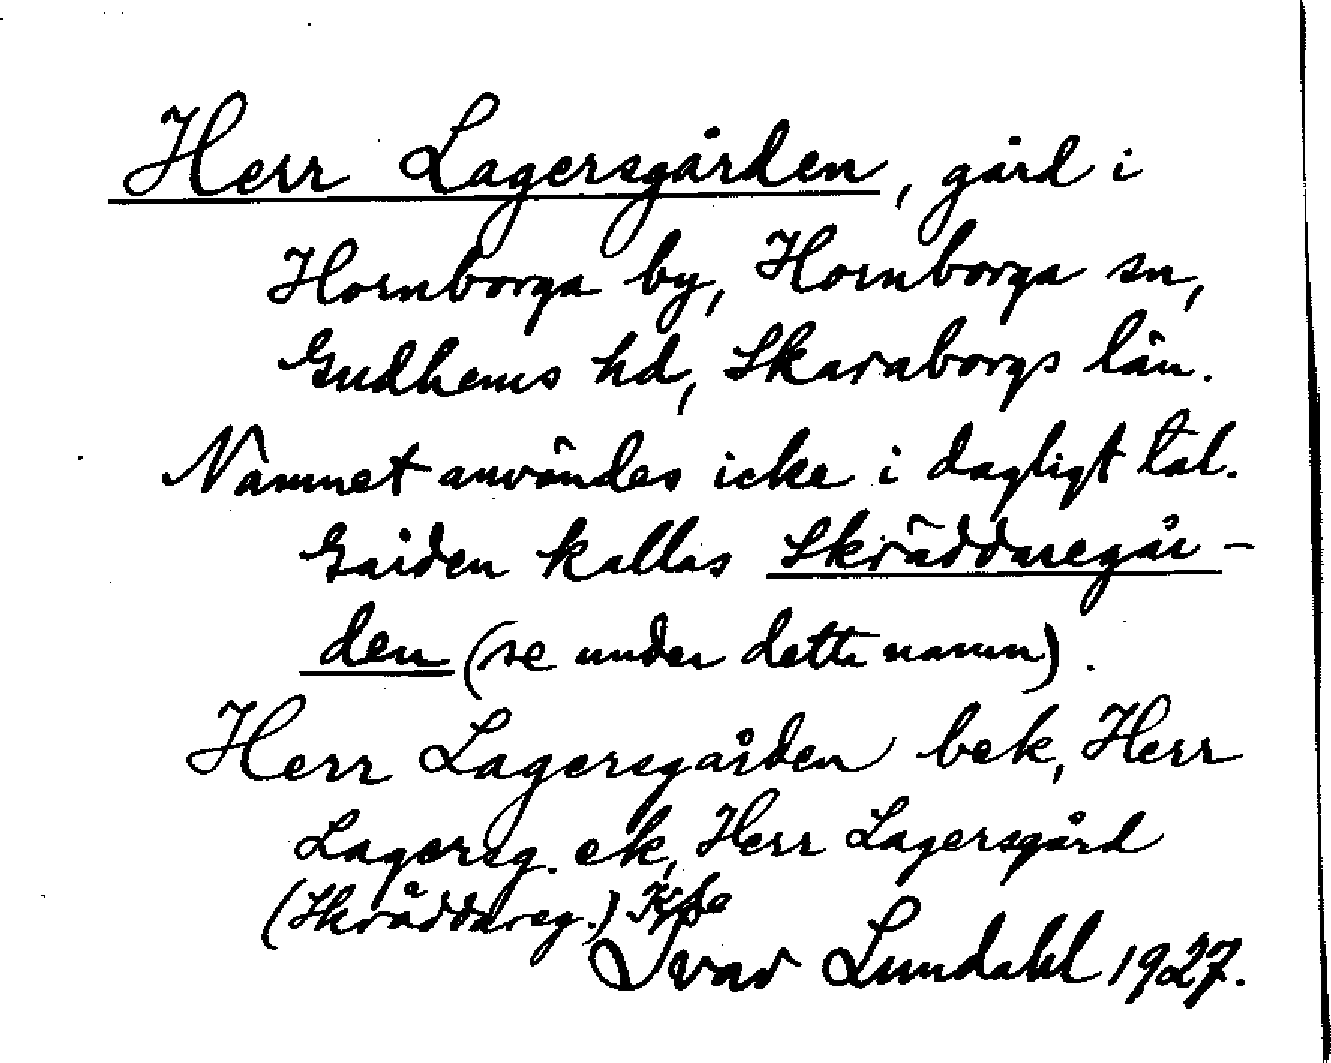 Herr Lagersgården, gård i
Hornborga by, Hornborga sn,
Gudhems hd, Skaraborgs län.
Namnet användes icke i dagligt tal.
Gården kallas Skräddaregår-
den (se under detta namn).
Herr Lagersgården bek, Herr
Lagersg. ek, Herr Lagersgård
(Skräddareg.)
Ivar Lundahl 1927.